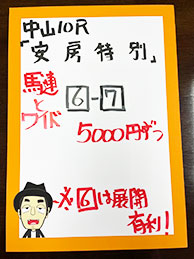 中山10R
「安房特別」
馬連
と
ワイド
6-7
5000円ずつ
※6は展開
有利！